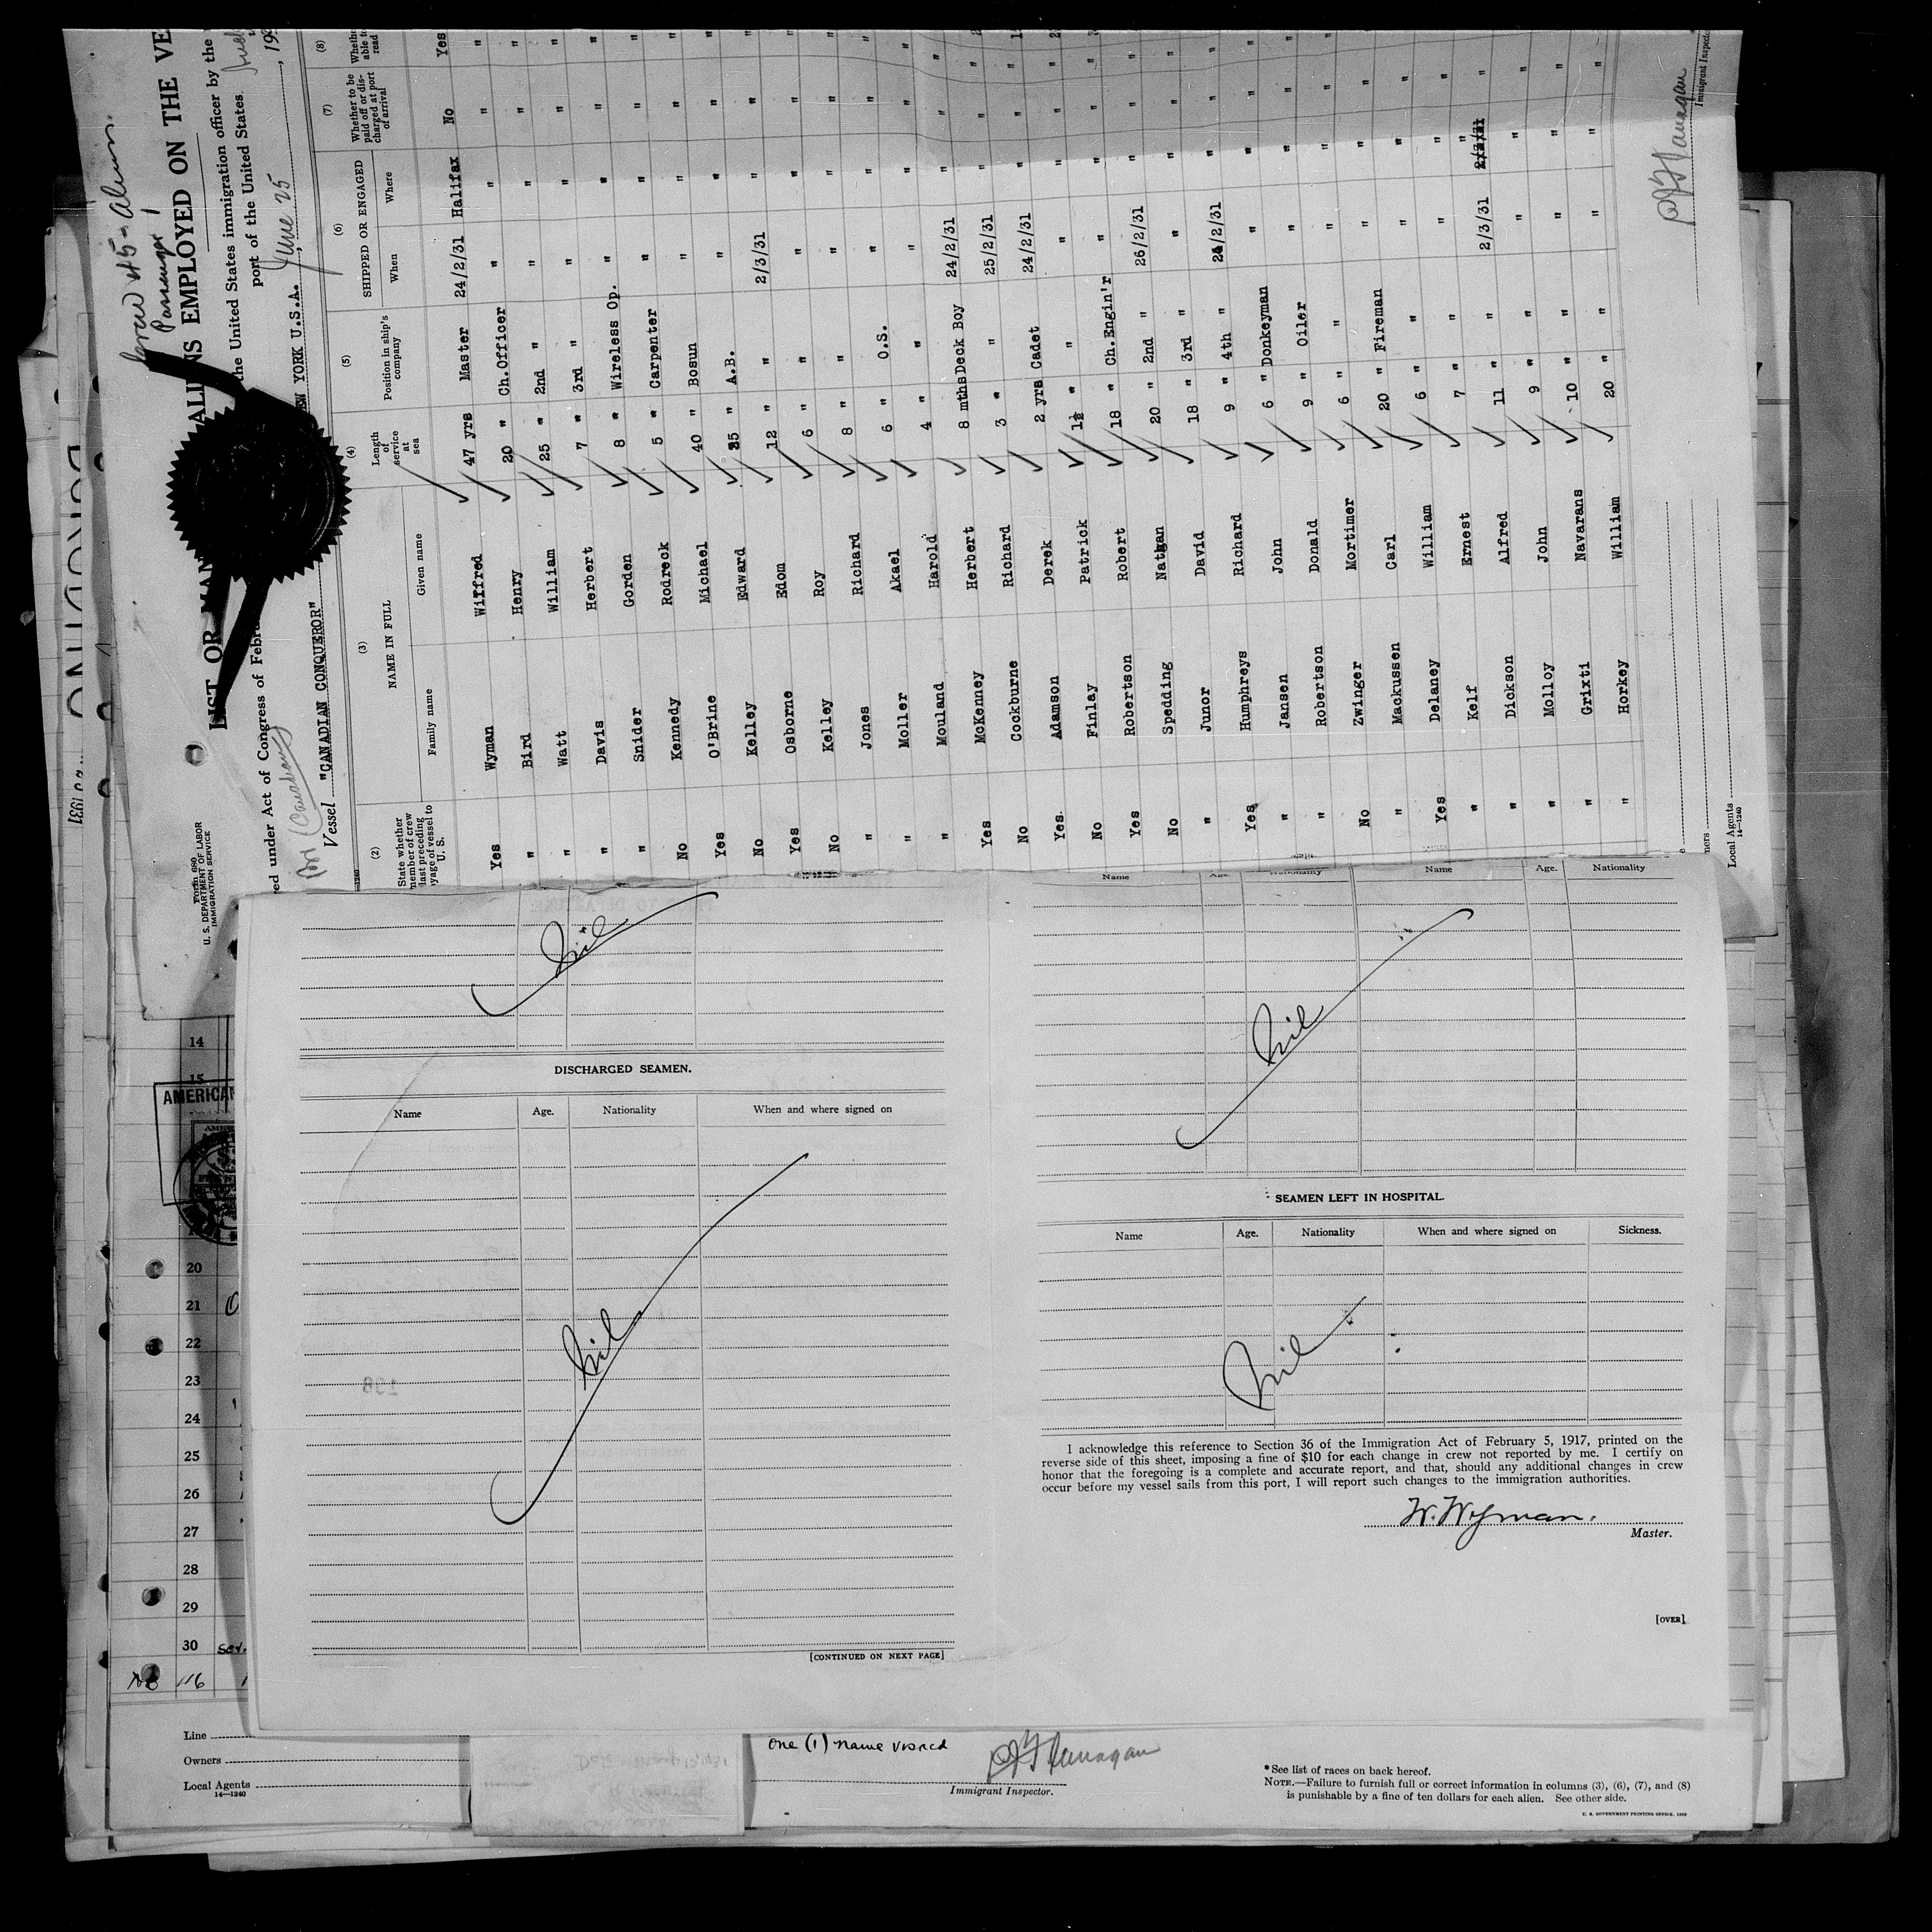 Form 680
U. S. DEPARTMENT OF LABOR
IMMIGRATION SERVICE
Crew 45 - Aliens.
Passenger 1
LIST OR ALIENS EMPLOYED ON THE VE
ed under Act of Congress of Febru the United States immigration officer by the
port of the United States
Vessel "CANADIAN CONQUEROR" EW YORK U.S.A. June 25, 193
(2) (3) (4) (5) (6) (7) (8)
State whether member of crew last preceding voyage of vessel to U. S.
NAME IN FULL
Family name Given name
Length of service at sea
Position in ship's company
SHIPPED OR ENGAGED
When Where
Whether to be paid off or discharged at port of arrival
Whether able to read
Yes Wyman Wilfred 47 yrs Master 24/2/31 Halifax No Yes
" Bird Henry 20 " Ch.Officer " " " "
" Watt William 25 " 2nd " " " " "
" Davis Herbert 7 " 3rd " " " " "
" Snider Gorden 8 " Wireless Op. " " " "
No Kennedy Rodreck 5 " Carpenter " " " "
Yes O'Brine Michael 40 " Bosun " " " "
No Kelley Edward 35 " A.B. " " " "
Yes Osborne Edom 12 " " 2/3/31 " " "
No Kelley Roy 6 " " " " " "
" Jones Richard 8 " " " " " "
" Moller Akael 6 " O.S. " " " "
" Mouland Harold 4 " " " " " "
Yes McKenney Herbert 8 mths Deck Boy 24/2/31 " " "
No Cockburne Richard 3 " " 25/2/31 " " "
Yes. Adamson Derek 2 yrs Cadet 24/2/31 " " "
No Finlay Patrick 1½ " " " " " "
Yes Robertson Robert 18 " Ch.Engin'r " " " "
No Spedding Nathan 20 " 2nd " 26/2/31 " " "
" Junor David 18 " 3rd " " " " "
Yes Humphreys Richard 9 " 4th " 24/2/31 " " "
" Jansen John 6 " Donkeyman " " " "
" Robertson Donald 9 " Oiler " " " "
No Zwinger Mortimer 6 " " " " " "
" Mackussen Carl 20 " Fireman " " " "
Yes Delaney William 6 " " " " " "
" Kelf Ernest 7 " " " " " "
" Dickson Alfred 11 " " 2/3/31 2/3/31 " "
" Molloy John 9 " " " " " "
" Grixti Navarans 10 " " " " " "
" Horkey William 20 " " " " " "
Local Agents
14—1240
Immigrant Inspector
Nil
DISCHARGED SEAMEN.
Name Age. Nationality When and where signed on
Nil
[CONTINUED ON NEXT PAGE]
Name Age. Nationality Name Age. Nationality
Nil
SEAMEN LEFT IN HOSPITAL.
Name Age. Nationality When and where signed on Sickness.
Nil
I acknowledge this reference to Section 36 of the Immigration Act of February 5, 1917, printed on the
reverse side of this sheet, imposing a fine of $10 for each change in crew not reported by me. I certify on
honor that the foregoing is a complete and accurate report, and that, should any additional changes in crew
occur before my vessel sails from this port, I will report such changes to the immigration authorities.
W. Wyman.
Master.
[OVER]
14
15
AMERICAN
20
21
22
23
24
25
26
27
28
29
30
116
Line
Owners
Local Agents
14—1240
one (1) name visaed
Immigrant Inspector.
*See list of races on back hereof.
NOTE.—Failure to furnish full or correct information in columns (3), (6), (7), and (8)
is punishable by a fine of ten dollars for each alien. See other side.
U. S. GOVERNMENT PRINTING OFFICE.